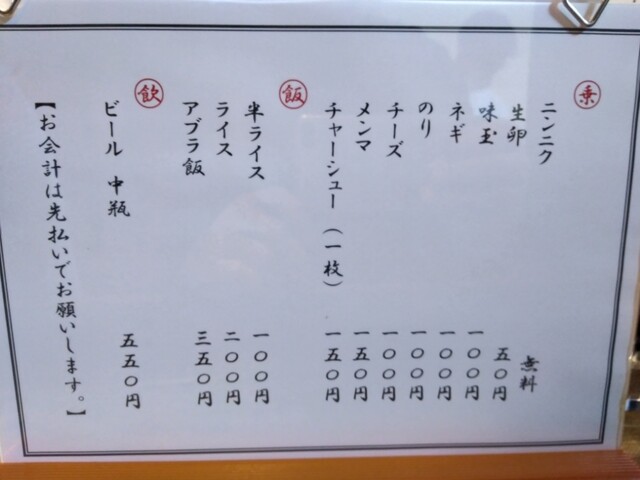 乗
ニンニク 無料
生卵 五〇円
味玉 一〇〇円
ネギ 一〇〇円
のり 一〇〇円
チーズ 一〇〇円
メンマ 一五〇円
チャーシュー（一枚） 一五〇円
飯
半ライス 一〇〇円
ライス 二〇〇円
アブラ飯 三五〇円
飲
ビール 中瓶 五五〇円
【お会計は先払いでお願いします。】